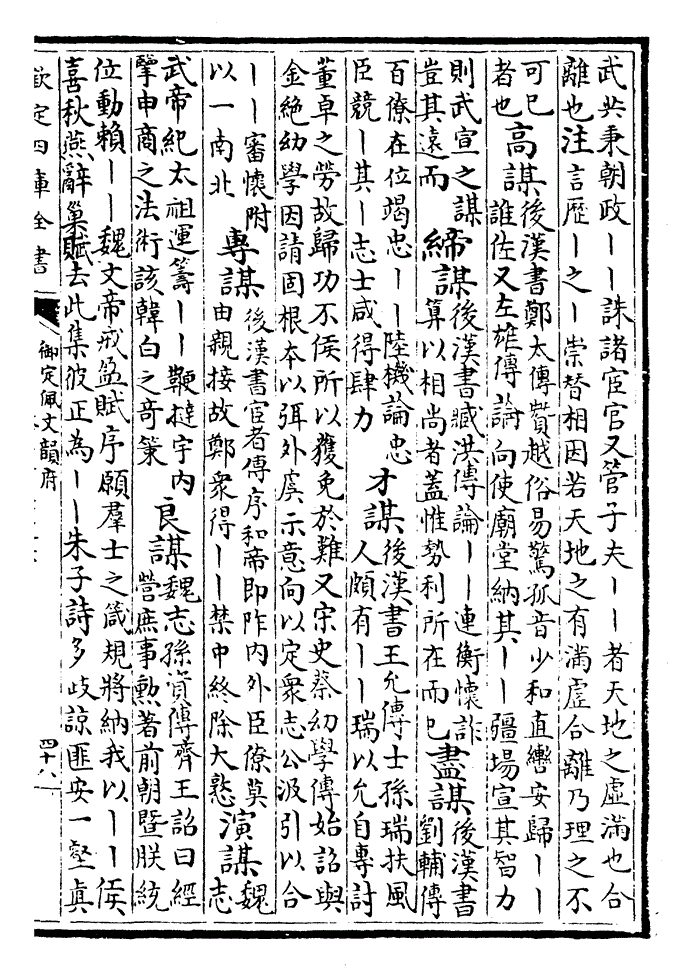 武共秉朝政丨丨誅諸宦官又管子夫丨丨者天地之虛滿也合
離也注言歷丨之丨崇替相因若天地之有滿虛合離乃理之不
可已
者也
高謀
後漢書鄭太傳贊越俗易驚孤音少和直轡安歸丨丨
誰佐又左雄傳論向使廟堂納其丨丨疆場宣其智力
則武宣之謀
豈其遠而
締謀
後漢書臧洪傳論丨丨連衡懷詐
算以相尚者蓋惟勢利所在而已
盡謀
後漢書
劉輔傳
百僚在位竭忠丨丨陸機論忠
臣競丨其丨志士咸得肆力
才謀
後漢書王允傳士孫瑞扶風
人頗有丨丨瑞以允自專討
董卓之勞故歸功不侯所以獲免於難又宋史蔡幼學傳始詔與
金絶幼學因請固根本以弭外虞示意向以定衆志公汲引以合
丨丨審懷附
以一南北
專謀
後漢書宦者傳序和帝即阼内外臣僚莫
由親接故鄭衆得丨丨禁中終除大憝
演謀
魏
志
武帝紀太祖運籌丨丨鞭撻宇内
擥申商之法術該韓白之竒策
良謀
魏志孫資傳齊王詔曰經
營庶事勲著前朝暨朕統
位動賴丨丨魏文帝戒盈賦序願羣士之箴規將納我以丨丨侯
喜秋燕辭巢賦去此集彼正為丨丨朱子詩多歧諒匪安一壑真
欽定四庫全書
御定佩文韻府
四十八